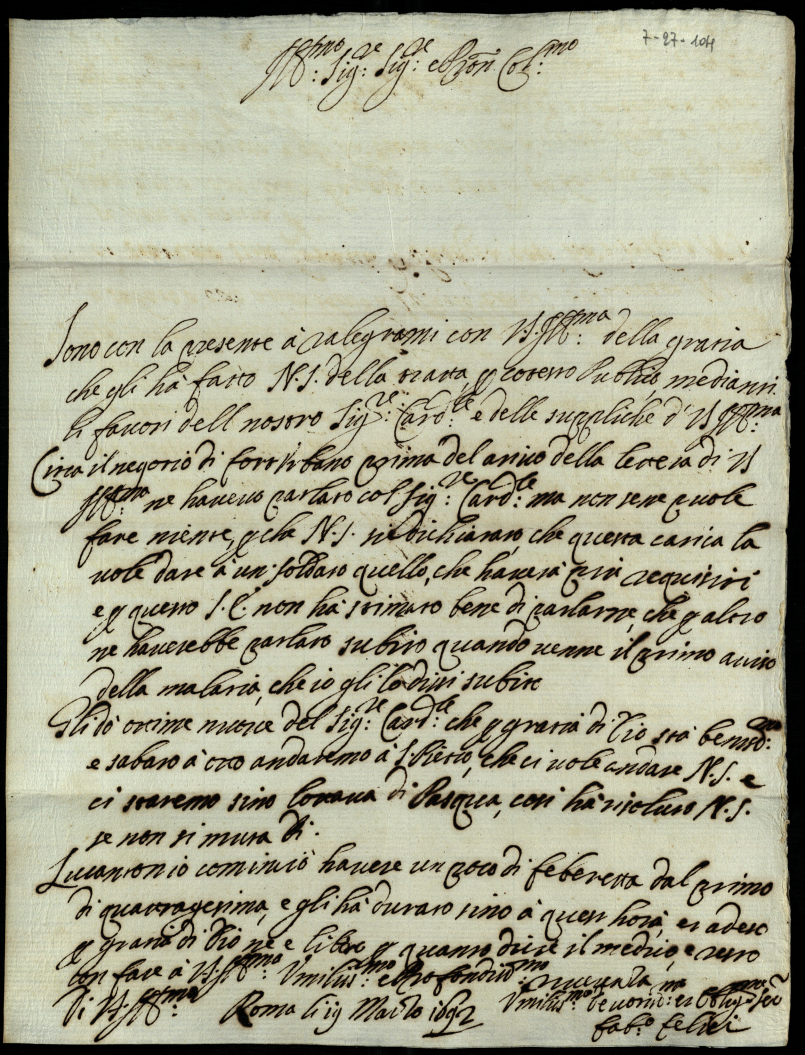 7-27-104
Ill:mo Sig:re Sig:re e Pron Col:mo
Sono con la presente à ralegrarmi con V.S. Ill:ma della gratia
che gli hà fatto N.S. della tratta, p cotesto Publico medianti
li favori dell nostro Sig:re Card:le e delle suppliche d' VS Ill:ma
Circa il negotio di forte Urbano prima del arivo della letera di VS
Ill:ma ne havevo parlato col Sig:re Card:le ma non sene puole
fare niente, p che N.S. si è dichiarato, che questa carica la
vole dare à un soldato quello, che haverà più requisiti
e p questo S.E. non hà stimato bene di parlarne, che p altro
ne haverebbe parlato subito quando venne il primo aviso
della malatia, che io gli lo dissi subito
Gli dò ottime nuove del Sig:re Card:le che p gratia di Dio stà beniss:mo
e sabato à otto andaremo à S. Pietro, che ci vole andare N.S. e
ci staremo sino l'ottava di Pasqua, cosi hà risoluto N.S.
se non si muta di:
Lucantonio cominciò havere un poco di feberetta dal primo
di quaragesima, e gli hà durato sino à quest hora, et adeso
p gratia di Dio ne e libero p quanto dice il medico, e resto
con fare à VS. Ill:ma Umilis:ma e Profondis:ma riverenza
Di VS. Ill:ma Roma li 19 Marzo 1692 Umilis:mo Devotis:mo et Oblig:mo Ser
Fab:o Felici